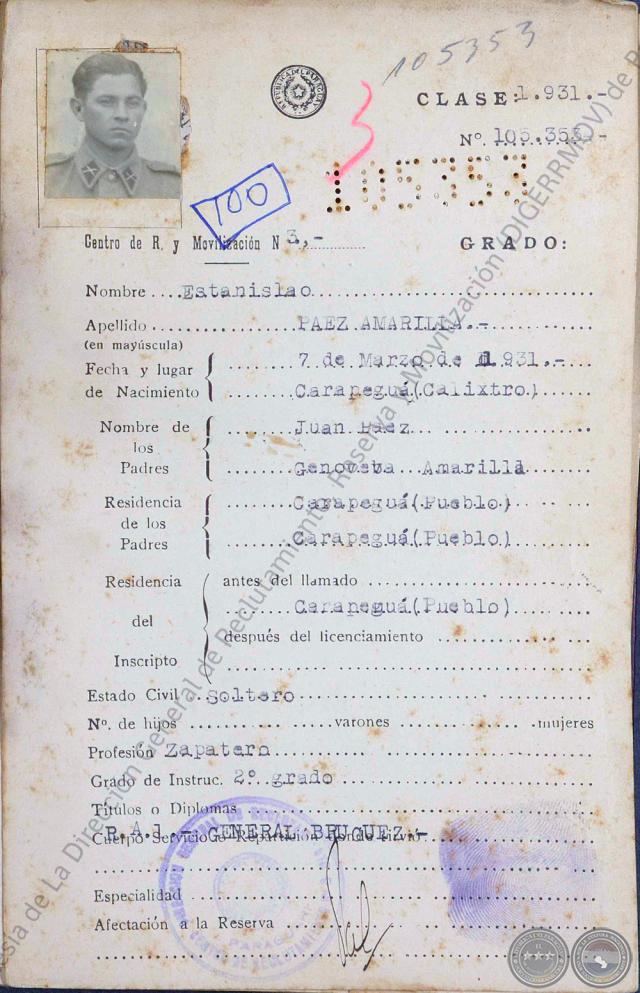 105353
REPUBLICA DEL PARAGUAY
CLASE: 1.931.-
Nº. 105.353.-
3
105353
100
Centro de R. y Movilización N 3,-
GRADO:
Nombre .... Estanislao
Apellido .......... PAEZ AMARILLA.-
(en mayúscula)
Fecha y lugar de Nacimiento
7 de Marzo de 1931.-
Carapeguá(Calixtro)
Nombre de los Padres
Juan Paez
Genoveba Amarilla
Residencia de los Padres
Carapeguá(Pueblo)
Carapeguá(Pueblo)
Residencia del Inscripto
antes del llamado
Carapeguá(Pueblo)
después del licenciamiento
Estado Civil Soltero
Nº. de hijos .......... varones .......... mujeres
Profesión Zapatero
Grado de Instruc. 2º grado
Títulos o Diplomas
R.A.1.- GENERAL BRUGUEZ.-
Cuerpo Servicio o Repartición donde sirvió
Especialidad
Afectación a la Reserva
PARAGUAY
de La Dirección General de Reclutamiento, Reserva y Movilización (DIGERRMOV) de